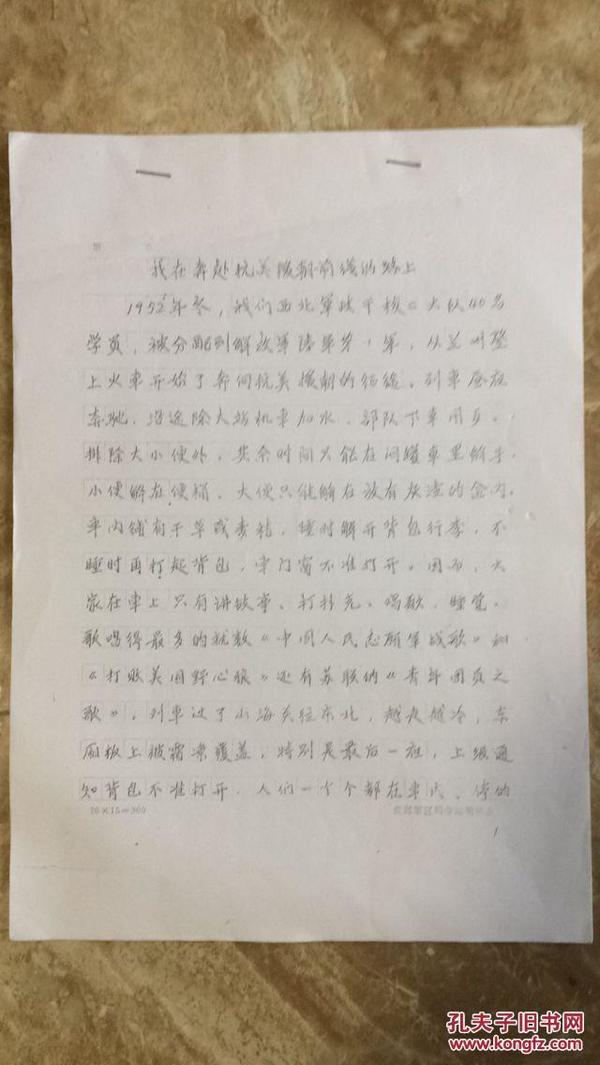 第 页
我在奔赴抗美援朝前线的路上
1952年冬，我们西北军政干校二大队40名
学员，被分配到解放军陆军第1军，从兰州登
上火车开始了奔向抗美援朝的征途。列车昼夜
奔驰，沿途除大站机车加水，部队下车用互。
排除大小便外，其余时间只能在闷罐车里解手
小便解在便桶，大便只能解在放有灰渣的盒内。
车内铺有干草或麦秸，睡时解开背包行李，不
睡时再打起背包，车门窗不准打开。因而，大
家在车上只有讲故事、打扑克、唱歌、睡觉。
歌唱得最多的就数《中国人民志愿军战歌》和
《打败美国野心狼》还有苏联的《青年团员之
歌》。列车过了山海关经东北，越走越冷，车
厢板上被霜冻覆盖，特别是最后一程，上级通
知背包不准打开，人们一个个都在车内，冻的
20×15=300
1
孔夫子旧书网
www.kongfz.com